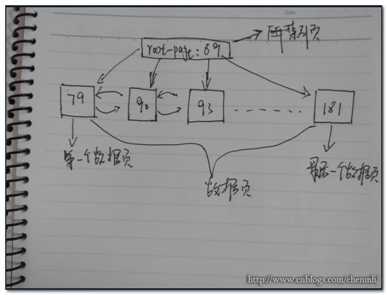 root-page:69
索引页
79
90
93
181
第一个数据页
数据页
最后一个数据页
http://www.cnblogs.com/chenmh